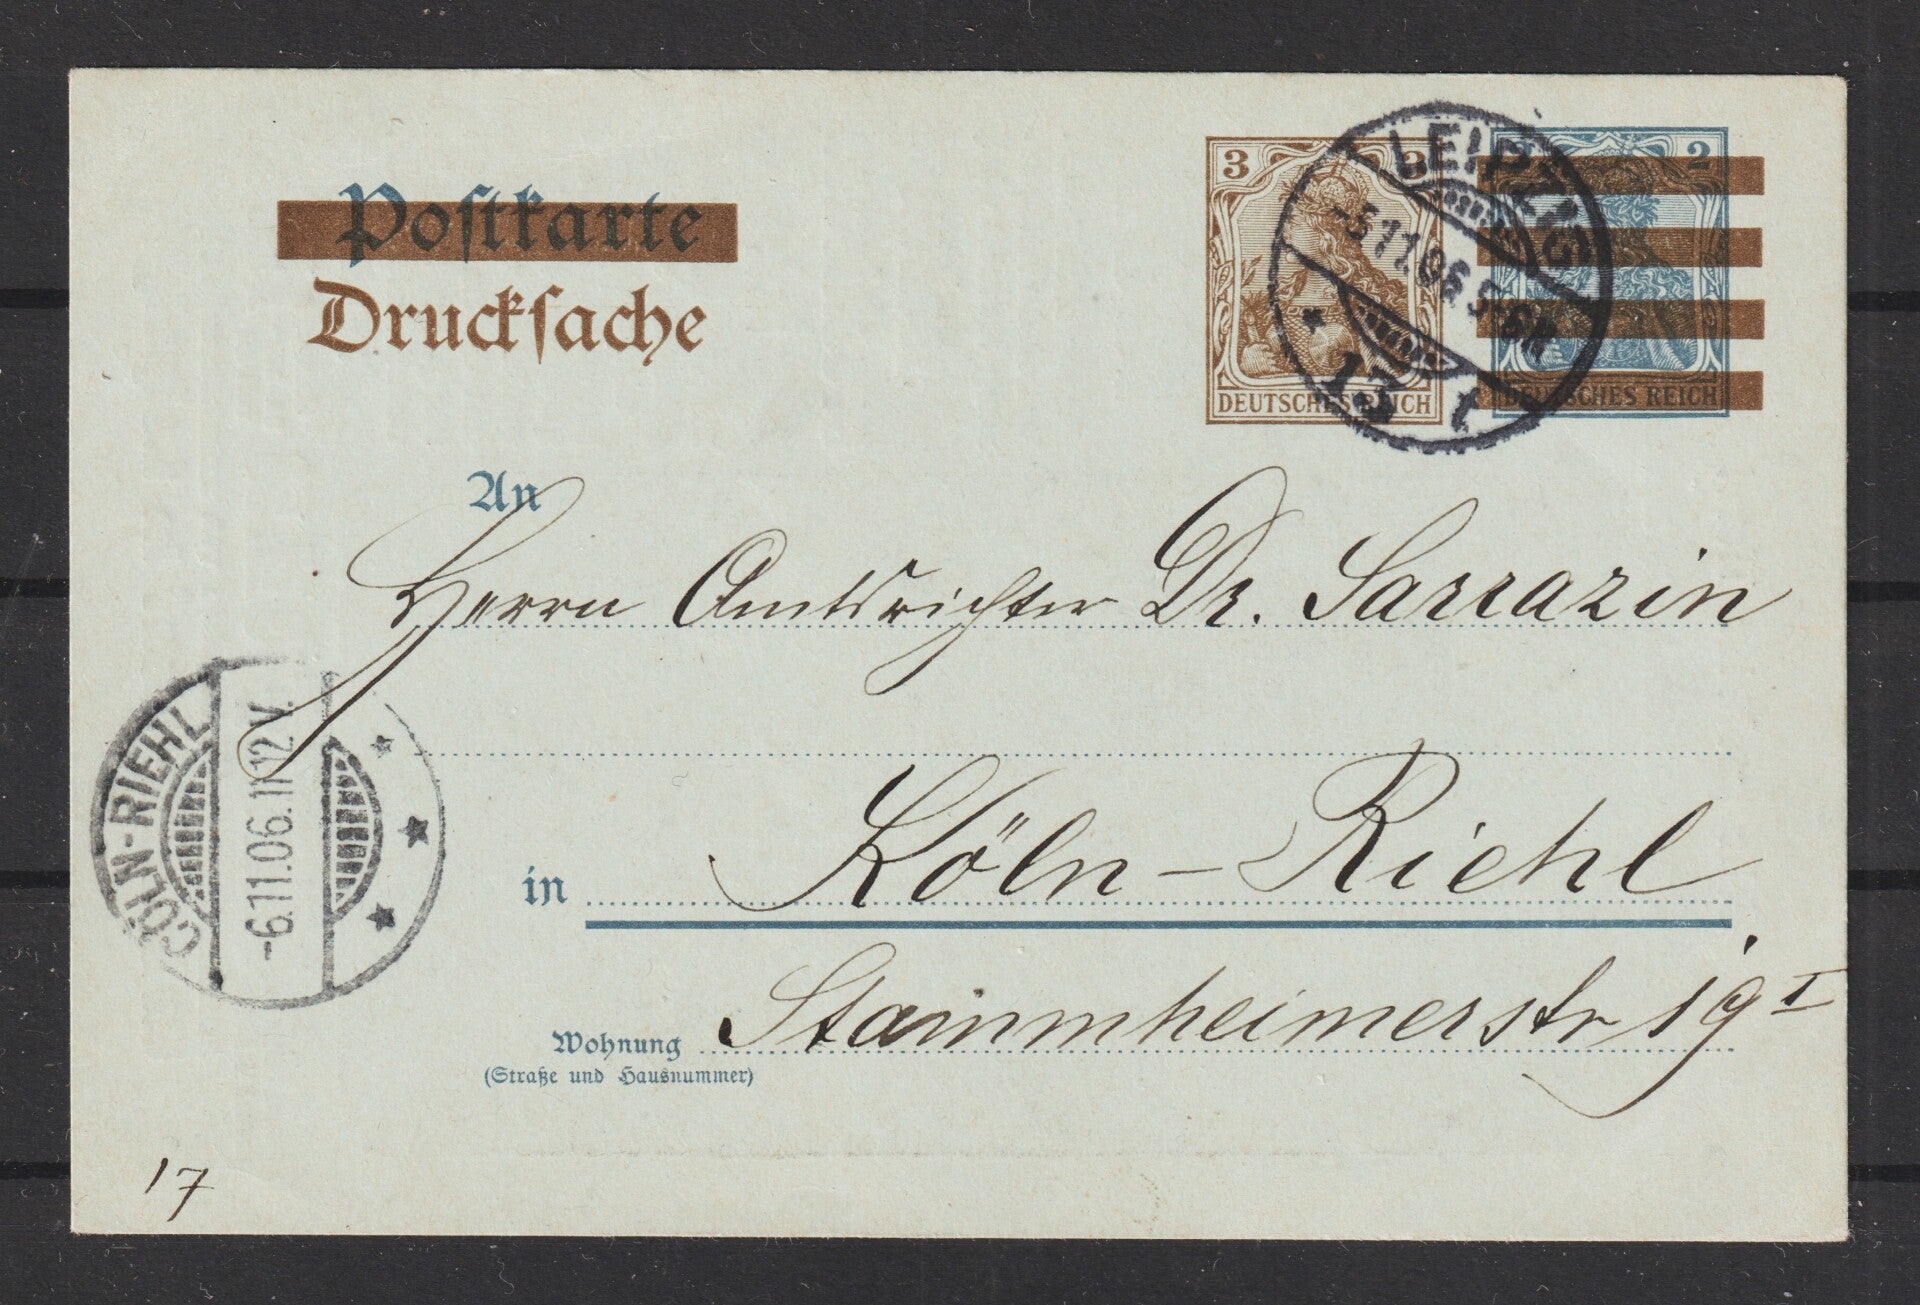 Postkarte
Drucksache
3 3
DEUTSCHES REICH
2
DEUTSCHES REICH
LEIPZIG
-5.11.06.5-6N
* 13 t
An
Herrn Amtsrichter Dr. Sarrazin
in Köln-Riehl
Wohnung Stammheimerstr 19 I
(Straße und Hausnummer)
CÖLN-RIEHL
-6.11.06.11-12V.
17